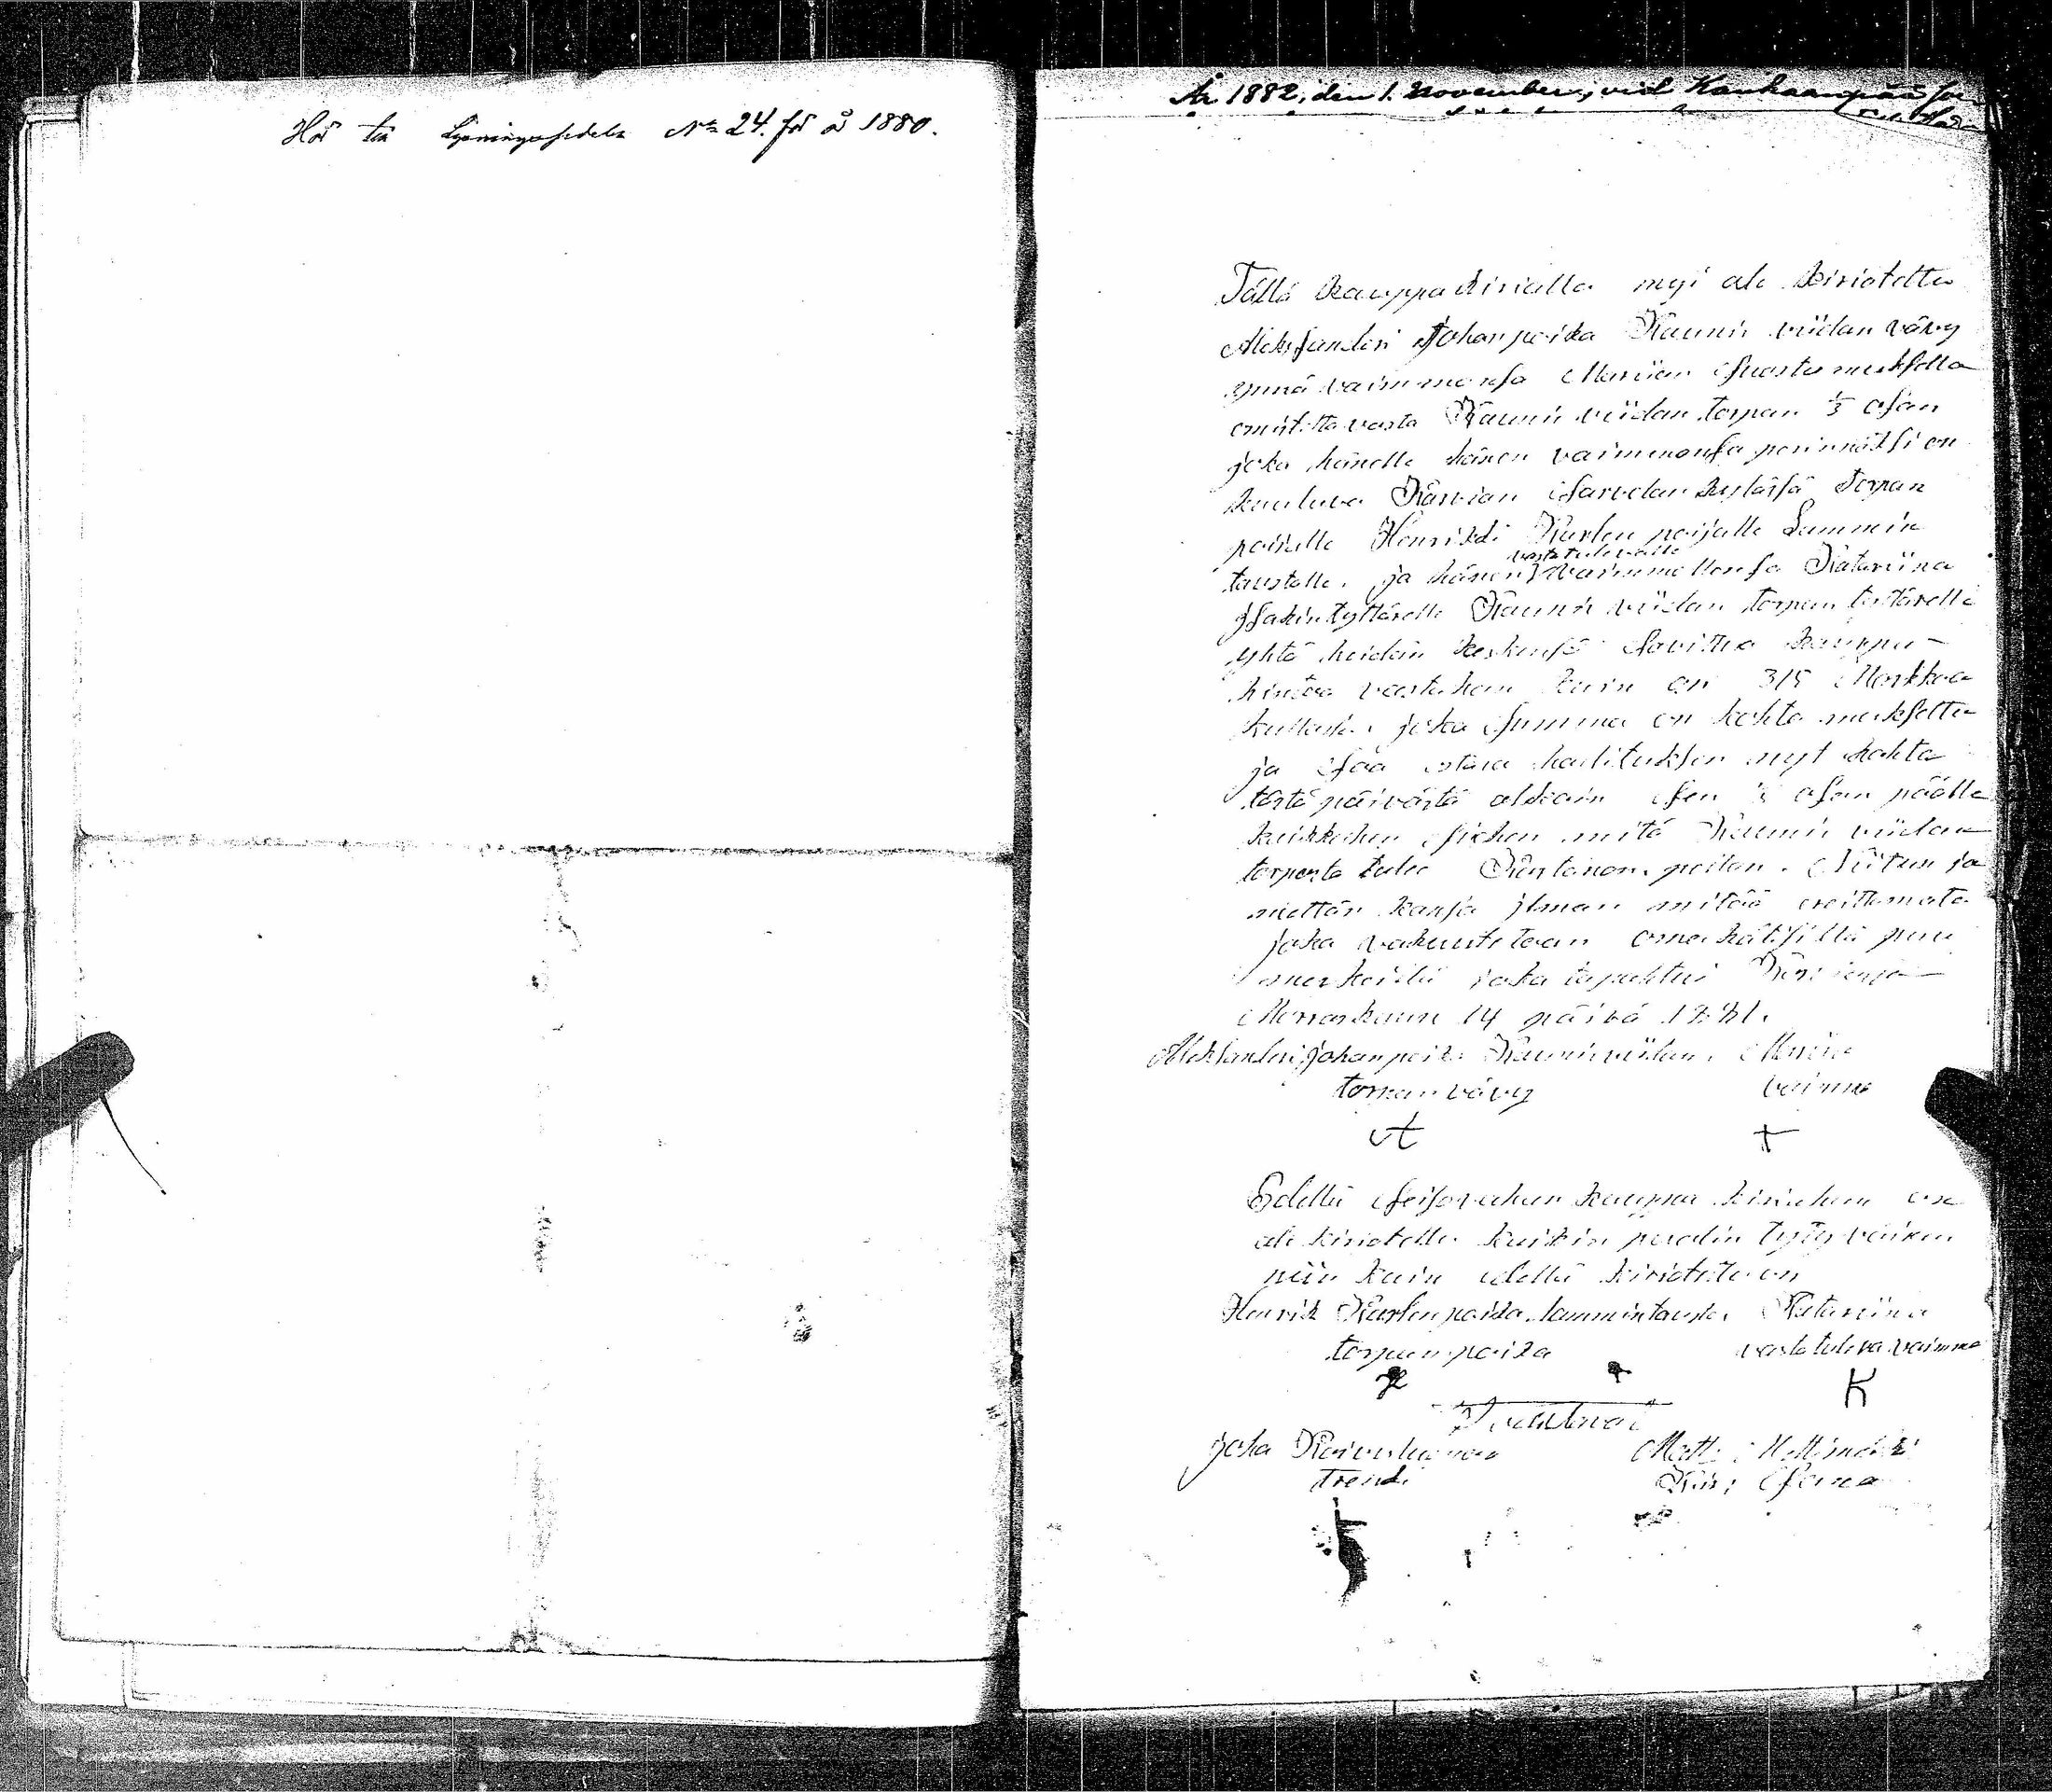 Hör till Lysningssedeln No 24. för år 1880.
År 1882, den 1. November, vid Kankaanpää
Tällä kauppa kirialla myi ala kiriotettu
Aleksanderi Johanpoika Kauniiviidan vävy
ynnä vaimmonsa Mariian suostumuksella
omistettavasta Kauniiviidan torpan 1/3 osan
joka hänelle hänen vaimmonsa perinnöksi on
kuuluva Karvian Sarvelan kylässä torpan
pojalle Henrikki Karlen pojalle Lammin
taustalle. ja hänen vastatulevalle vaimmollensa Katariina
Isakintyttärelle Kauniiviidan torpan tyttärelle
yhtä heidän keskensä sovittua kauppa-
hintaa vastahan kuin on 315 Markkaa
joka summa on kohta maksettu
ja saa ostaja hallituksen nyt kohta
tästä päivästä alkain sen 1/3 osan päälle
kaikkehen siehen mitä Kauniiviidan
torpasta tulee Kartanon, pellon. Niitun ja
mettän kansa ilman mitää eroittamata
joka vakuutetaan omakätisillä puu
merkeillä joka tapahtui
Marraskuun 14 päivä 1881.
Aleksanderi Johanpoika Kauniiviidan. Mariia
torpan vävy vaimmo
Edellä seisovahan kauppa kiriahan on
ala kiriotettu kaikin puolin tytyväinen
niin kuin edellä kiriotetu on
Henrik Karlenpoika Lammintausta. Katariina
torpan poika vastatuleva vaimmo
K
Todistavat
Joha
Trendi